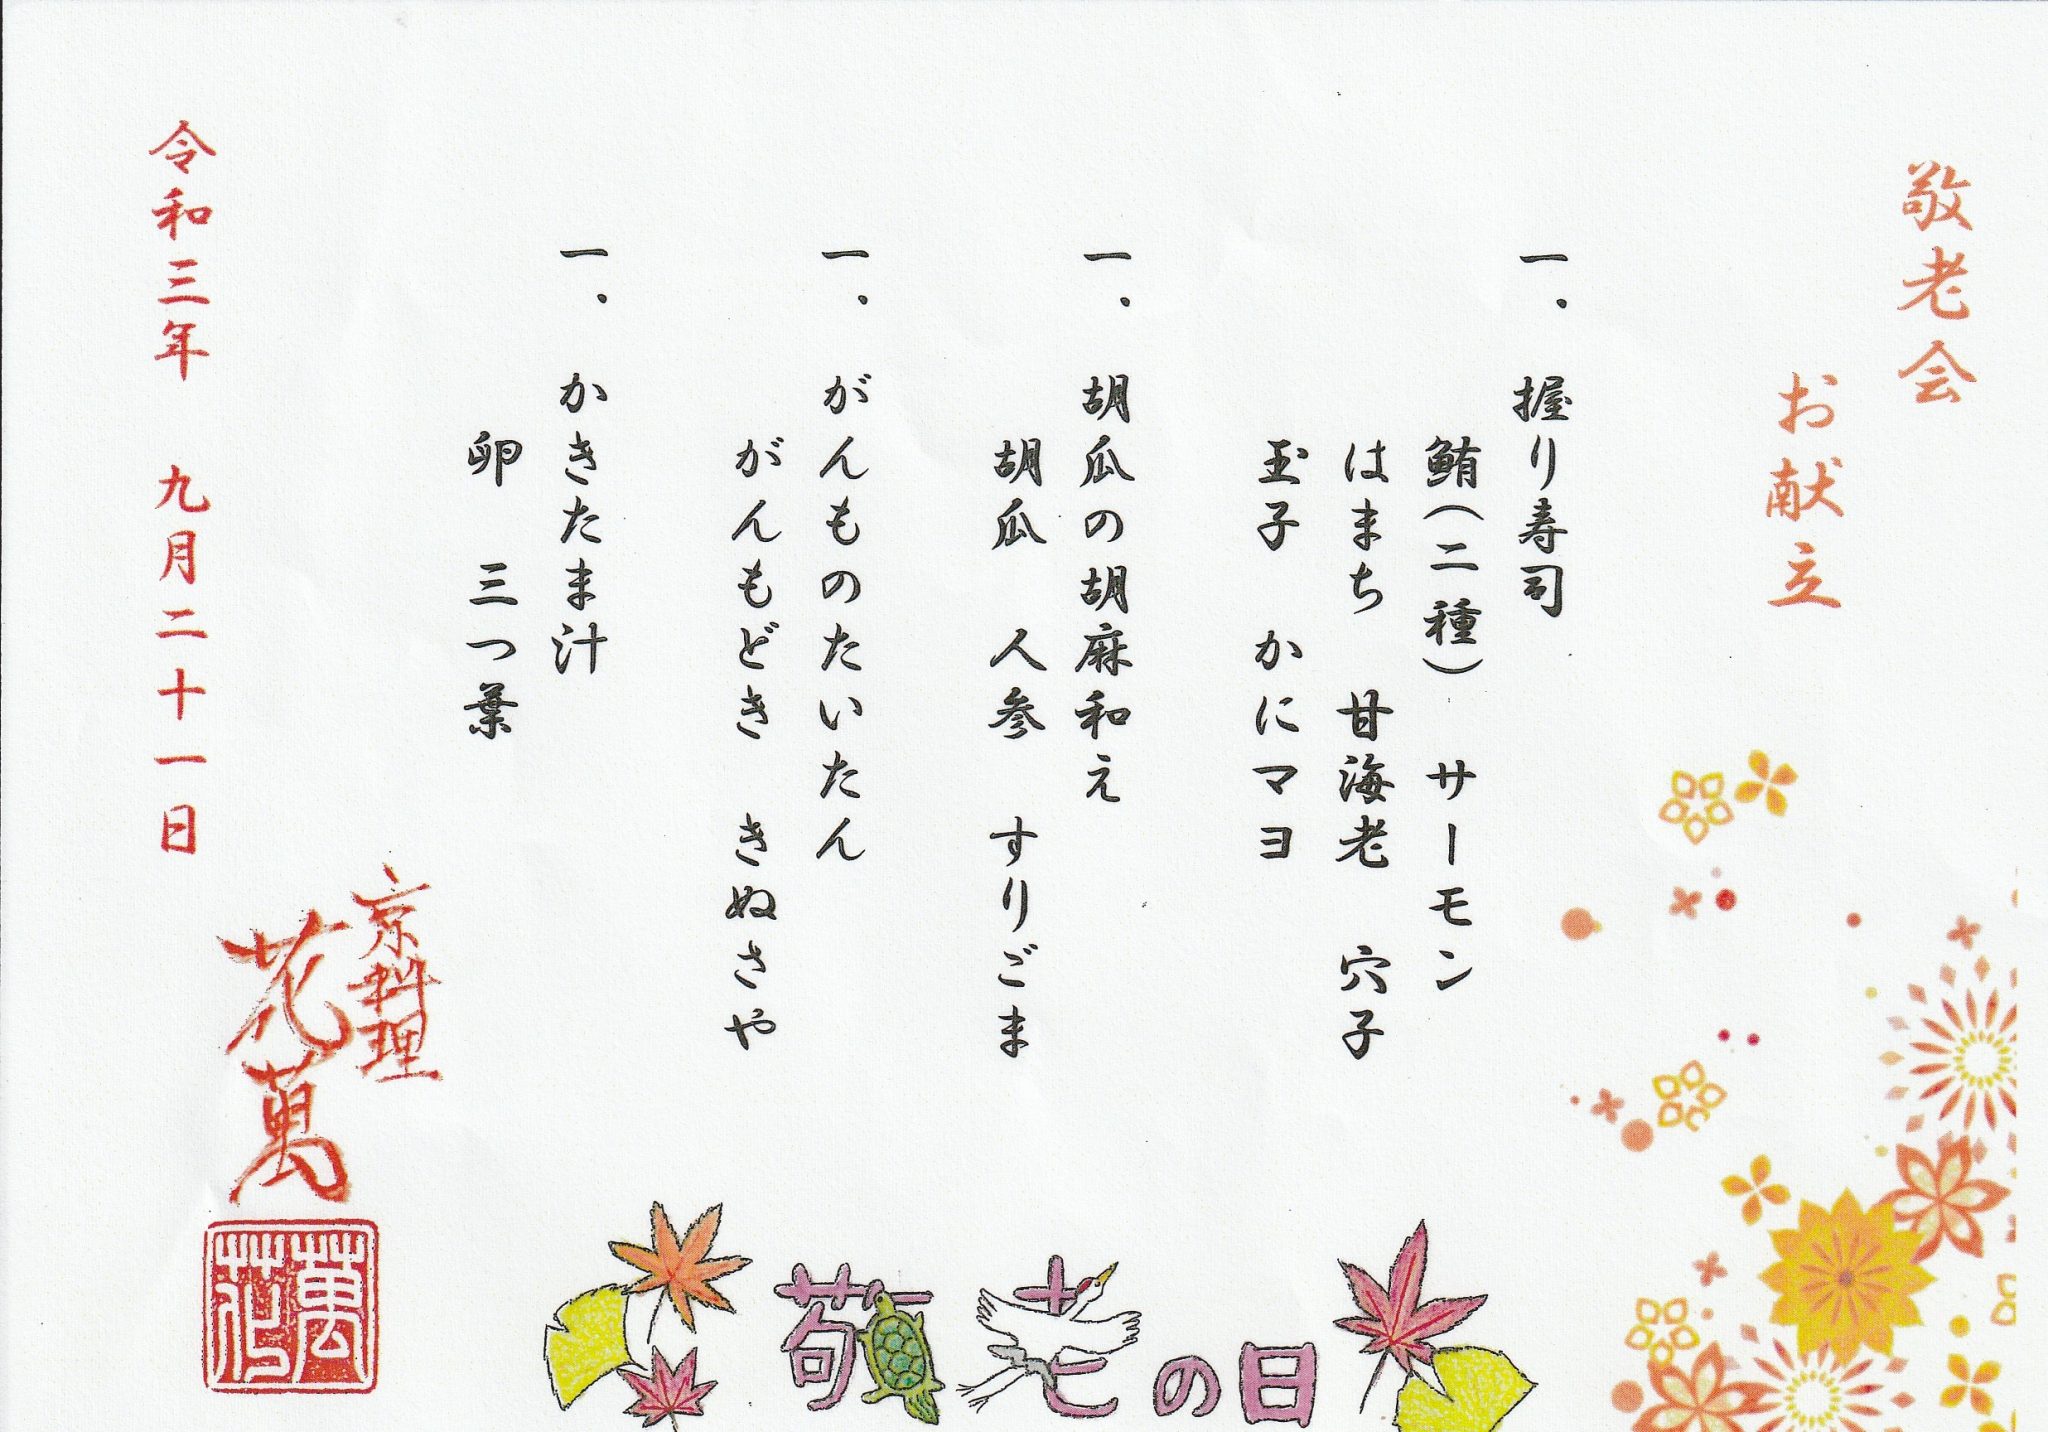 敬老会
お献立
一．握り寿司
鮪（二種）　サーモン
はまち　甘海老　穴子
玉子　かにマヨ
一．胡瓜の胡麻和え
胡瓜　人参　すりごま
一．がんものたいたん
がんもどき　きぬさや
一．かきたま汁
卵　三つ葉
令和三年　九月二十一日
京料理
花萬
萬
花
敬老の日